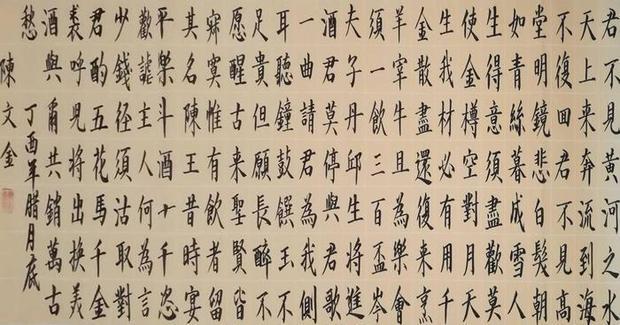 君不見黃河之水
天上來奔流到海
不復回君不見高
堂明鏡悲白髮朝
如青絲暮成雪人
生得意須盡歡莫
使金樽空對月天
生我材必有用千
金散盡還復来烹
羊宰牛且為樂會
須一飲三百盃岑
夫子丹邱生將進
酒君莫停與君歌
一曲請君為我側
耳聽鐘鼓饌玉不
足貴但願長醉不
愿醒古来聖賢皆
寂寞惟有飲者留
其名陳王昔時宴
平樂斗酒十千恣
歡謔主人何為言
少錢徑須沽取對
君酌五花馬千金
裘呼兒將出換美
酒與爾共銷萬古
愁 丁酉年臘月底
陳文金